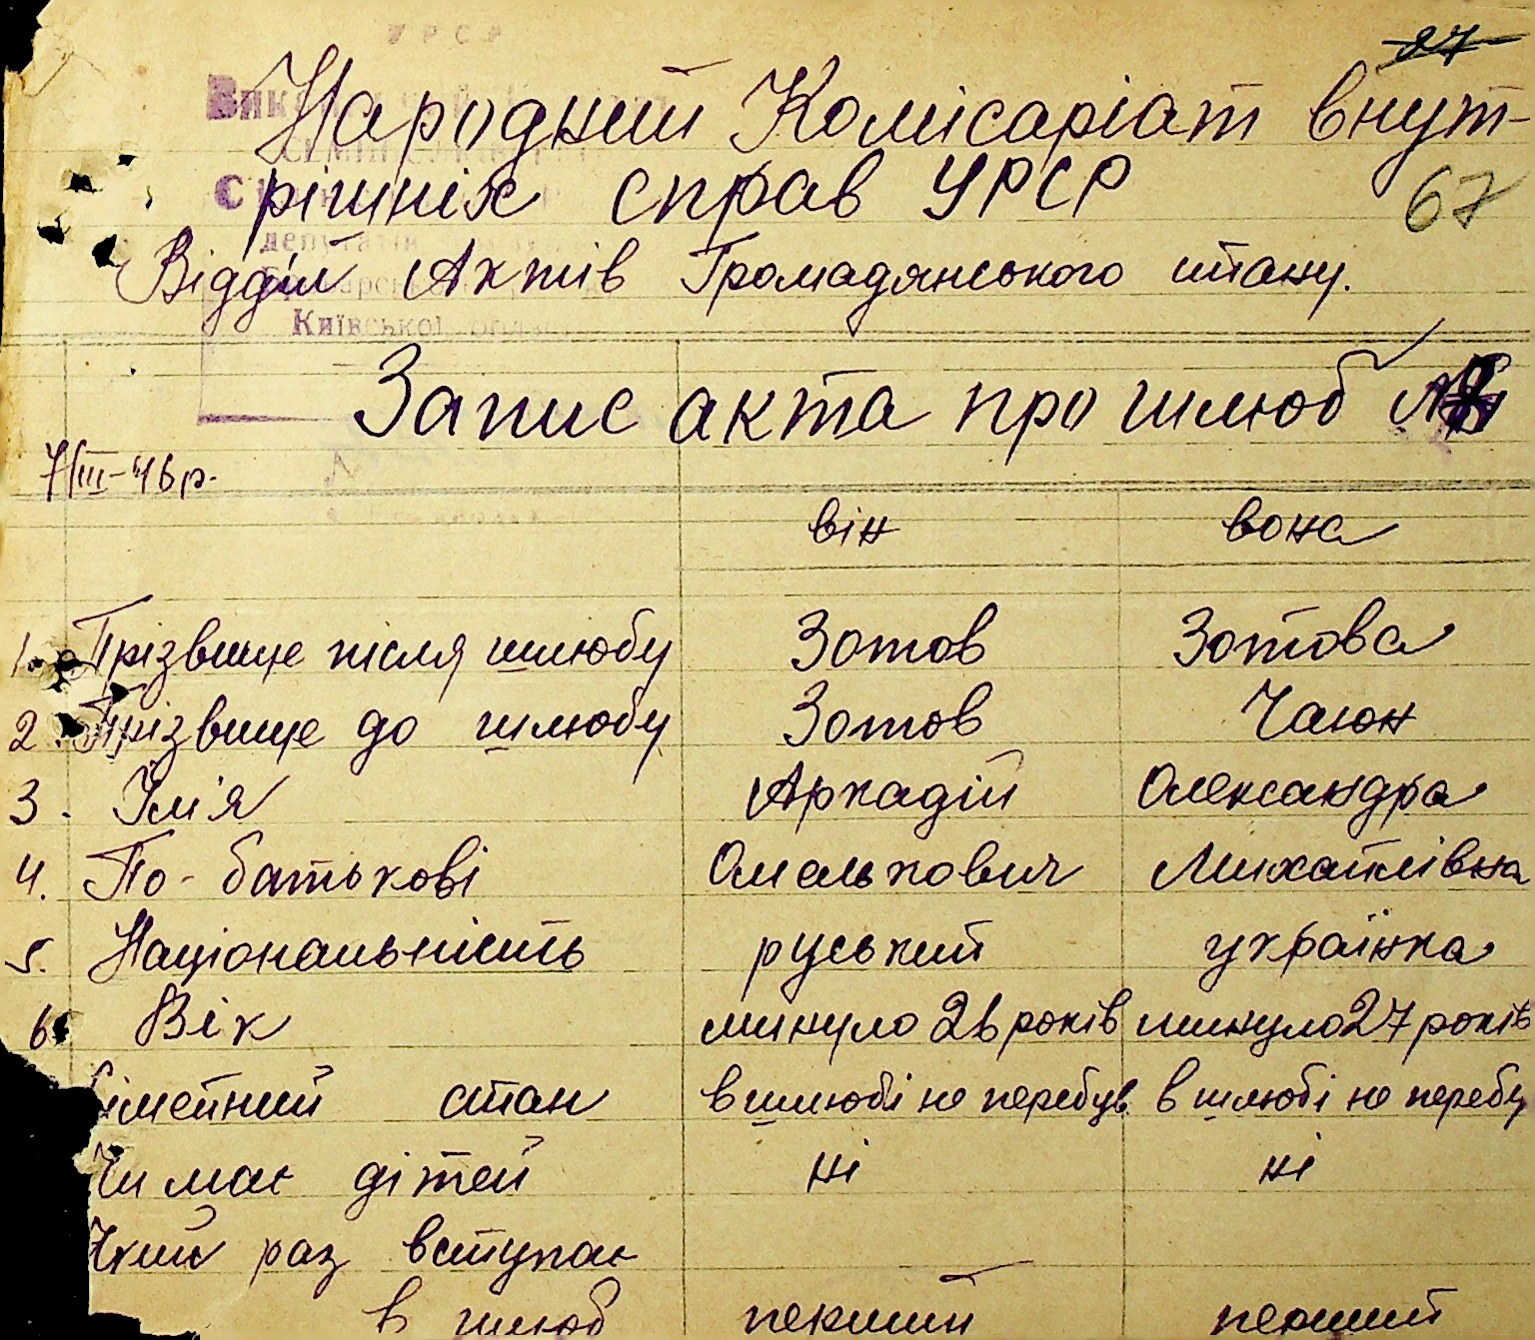 УРСР
27
Народний Комісаріат внут-
рішніх справ УРСР
67
Відділ Актів Громадянського стану.
Київської
Запис акта про шлюб №
7/III-46р.
він вона
1. Прізвище після шлюбу Зотов Зотова
2. Прізвище до шлюбу Зотов Чаюн
3. Ім'я Аркадій Олександра
4. По-батькові Омелькович Михайлівна
5. Національність руський українка
6. Вік минуло 26 років минуло 27 років
Сімейний стан в шлюбі не перебув. в шлюбі не перебу
Чи має дітей ні ні
Який раз вступає
в шлюб перший перший